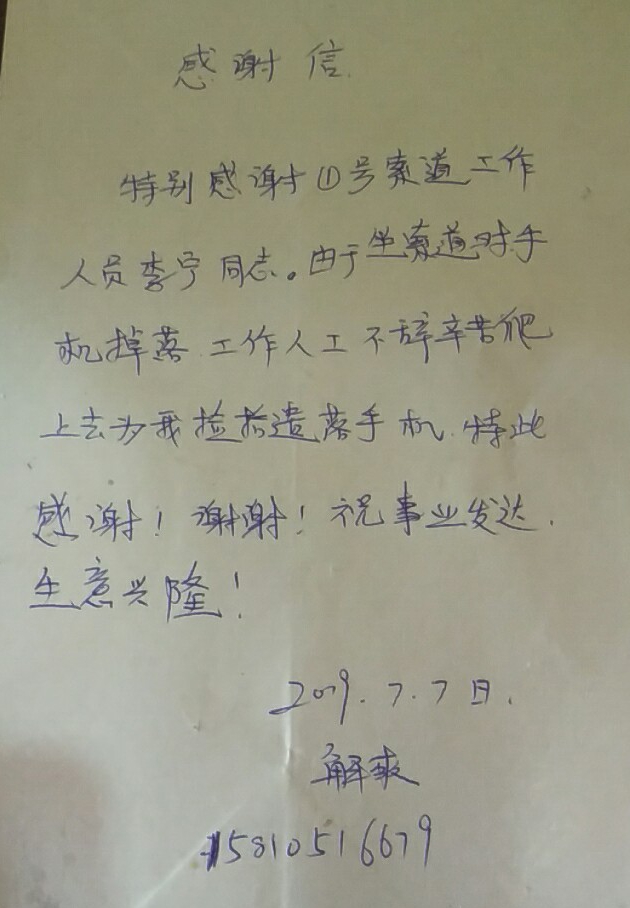 感谢信.
特别感谢①号索道工作
人员李宁同志。由于坐索道时手
机掉落.工作人工不辞辛苦爬
上去为我捡拾遗落手机.特此
感谢！谢谢！祝事业发达.
生意兴隆！
2019.7.7日.
解爽
15810516679